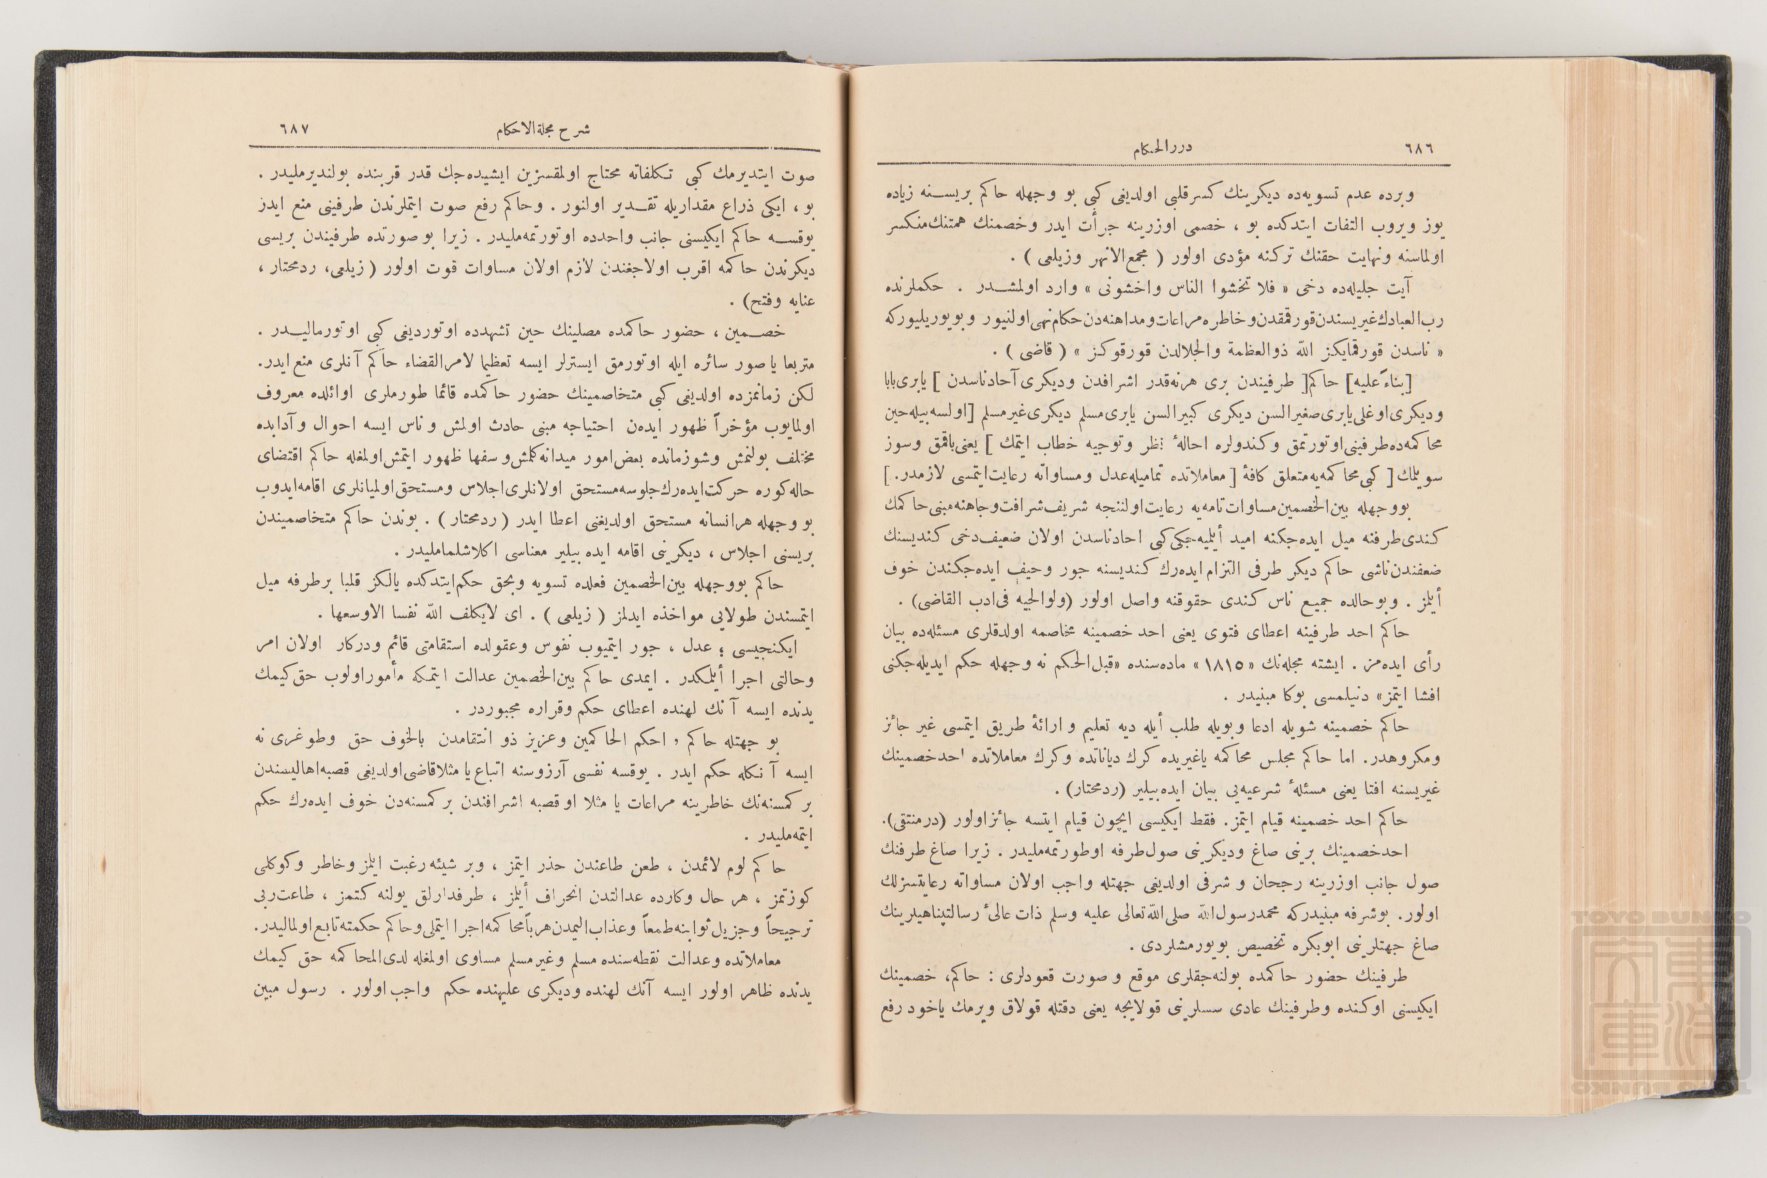 ٦٨٦
دررالحكام
وبرده عدم تسويه‌ده ديكرينك كسر قلبى اولديغى كبى بو وجهله حاكم بريسنه زياده
يوز ويروب التفات ايتدكده بو ، خصمى اوزرينه جرأت ايدر وخصمنك همتنك منكسر
اولماسنه ونهايت حقنك تركنه مؤدى اولور ( مجمع الانهر وزيلعى ) .
آيت جليله‌ده دخى « فلا تخشوا الناس واخشونى » وارد اولمشدر . حكملرنده
رب العبادك غيريسندن قورقمقدن وخاطره مراعات ومداهنه‌دن حكام نهى اولنيور وبويوريليوركه
« ناسدن قورقمايكز الله ذو العظمة والجلالدن قورقوكز » ( قاضى ) .
[بناءً عليه] حاكم [ طرفيندن برى هرنه‌قدر اشرافدن وديكرى آحاد ناسدن ] يابرى بابا
وديكرى اوغلى يابرى صغير السن ديكرى كبير السن يابرى مسلم ديكرى غير مسلم [ اولسه بيله حين
محاكمه‌ده طرفينى اوتورتمق وكندولره احالهٔ نظر وتوجيه خطاب ايتمك ] يعنى باقمق وسوز
سويلمك [ كبى محاكمه‌يه متعلق كافهٔ [ معاملاتده تماميله عدل ومساواته رعايت ايتمسى لازمدر. ]
بووجهله بين الخصمين مساوات تامه‌يه رعايت اولننجه شريف شرافت وجاهنه مبنى حاكمك
كندى طرفنه ميل ايده‌جكنه اميد أيليه‌جكى كبى احاد ناسدن اولان ضعيف دخى كنديسنك
ضعفندن ناشى حاكم ديكر طرفى التزام ايده‌رك كنديسنه جور وحيف ايده‌جكندن خوف
أيلمز . وبوحالده جميع ناس كندى حقوقنه واصل اولور (ولوالجيه فى ادب القاضى) .
حاكم احد طرفينه اعطاى فتوى يعنى احد خصمينه مخاصمه اولدقلرى مسئله‌ده بيان
رأى ايده‌مز . ايشته مجله‌نك «١٨١٥» ماده‌سنده «قبل الحكم نه وجهله حكم ايديله‌جكنى
افشا ايتمز» دنيلمسى بوكا مبنيدر .
حاكم خصمينه شويله ادعا وبويله طلب أيله ديه تعليم و ارائهٔ طريق ايتمسى غير جائز
ومكروهدر. اما حاكم مجلس محاكمه ياغيريده كرك دياناتده وكرك معاملاتده احد خصمينك
غيريسنه افتا يعنى مسئلهٔ شرعيه‌يى بيان ايده‌بيلير (ردمحتار) .
حاكم احد خصمينه قيام ايتمز. فقط ايكيسى ايچون قيام ايتسه جائز اولور (درمنتقى).
احد خصمينك برينى صاغ وديكرينى صول طرفه اوطورتمه‌مليدر . زيرا صاغ طرفنك
صول جانب اوزرينه رجحان و شرفى اولديغى جهتله واجب اولان مساواته رعايتسزلك
اولور. بوشرفه مبنيدركه محمد رسول الله صلى الله تعالى عليه وسلم ذات عالىٔ رسالتپناهيلرينك
صاغ جهتلرينى ابوبكره تخصيص بويورمشلردى .
طرفينك حضور حاكمده بولنه‌جقلرى موقع و صورت قعودلرى : حاكم، خصمينك
ايكيسنى اوكنده وطرفينك عادى سسلرينى قولايجه يعنى دقتله قولاق ويرمك ياخود رفع
شرح مجلة الاحكام
٦٨٧
صوت ايتديرمك كبى تكلفاته محتاج اولمقسزين ايشيده‌جك قدر قربنده بولنديرمليدر .
بو ، ايكى ذراع مقداريله تقدير اولنور . وحاكم رفع صوت ايتملرندن طرفينى منع ايدر
يوقسه حاكم ايكيسنى جانب واحدده اوتورتمه‌مليدر . زيرا بو صورتده طرفيندن بريسى
ديكرندن حاكمه اقرب اولاجغندن لازم اولان مساوات فوت اولور ( زيلعى، ردمحتار ،
عنايه وفتح) .
خصمين ، حضور حاكمده مصلينك حين تشهدده اوتورديغى كبى اوتورماليدر .
متربعا يا صور سائره ايله اوتورمق ايسترلر ايسه تعظيما لامر القضاء حاكم آنلرى منع ايدر.
لكن زمانمزده اولديغى كبى متخاصمينك حضور حاكمده قائما طورملرى اوائلده معروف
اولمايوب مؤخراً ظهور ايده‌ن احتياجه مبنى حادث اولمش و ناس ايسه احوال وآدابده
مختلف بولنمش وشو زمانده بعض امور ميدانه كلمش وسفها ظهور ايتمش اولمغله حاكم اقتضاى
حاله كوره حركت ايده‌رك جلوسه مستحق اولانلرى اجلاس ومستحق اولميانلرى اقامه ايدوب
بو وجهله هر انسانه مستحق اولديغنى اعطا ايدر ( ردمحتار ) . بوندن حاكم متخاصميندن
بريسنى اجلاس ، ديكرينى اقامه ايده بيلير معناسى اكلاشلماملىدر .
حاكم بووجهله بين الخصمين فعلده تسويه وبحق حكم ايتدكده يالكز قلبا بر طرفه ميل
ايتمسندن طولايى مواخذه ايدلمز ( زيلعى ) . اى لايكلف الله نفسا الاوسعها .
ايكنجيسى ؛ عدل ، جور ايتميوب نفوس وعقولده استقامتى قائم ودركار اولان امر
وحالتى اجرا أيلمكدر . ايمدى حاكم بين الخصمين عدالت ايتمكه مأمور اولوب حق كيمك
يدنده ايسه آنك لهنده اعطاى حكم وقراره مجبوردر .
بو جهتله حاكم ، احكم الحاكمين وعزيز ذو انتقامدن بالخوف حق وطوغرى نه
ايسه آنكله حكم ايدر . يوقسه نفسى آرزوسنه اتباع يا مثلا قاضى اولديغى قصبه اهاليسندن
بر كمسنه‌نك خاطرينه مراعات يا مثلا او قصبه اشرافندن بر كمسنه‌دن خوف ايده‌رك حكم
ايتمه‌مليدر .
حاكم لوم لائمدن ، طعن طاعندن حذر ايتمز ، وبر شيئه رغبت ايلمز وخاطر وكوكلى
كوزتمز ، هر حال وكارده عدالتدن انحراف أيلمز ، طرفدارلق يولنه كتمز ، طاعت ربى
ترجيحاً وجزيل ثوابنه طمعاً وعذاب اليمدن هرباً محاكمه اجرا ايتملى وحاكم حكمته تابع اولماليدر.
معاملاتده وعدالت نقطه‌سنده مسلم وغير مسلم مساوى اولمغله لدى المحاكمه حق كيمك
يدنده ظاهر اولور ايسه آنك لهنده وديكرى عليهنده حكم واجب اولور . رسول مبين